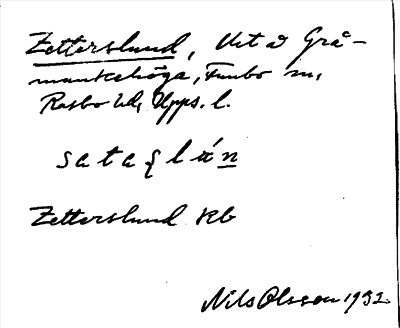 Zetterslund, Ut av Grå-
munkehöga, Funbo sn,
Rasbo hd, Upps. l.
Zetterslund Kb
Nils Olsson 1932